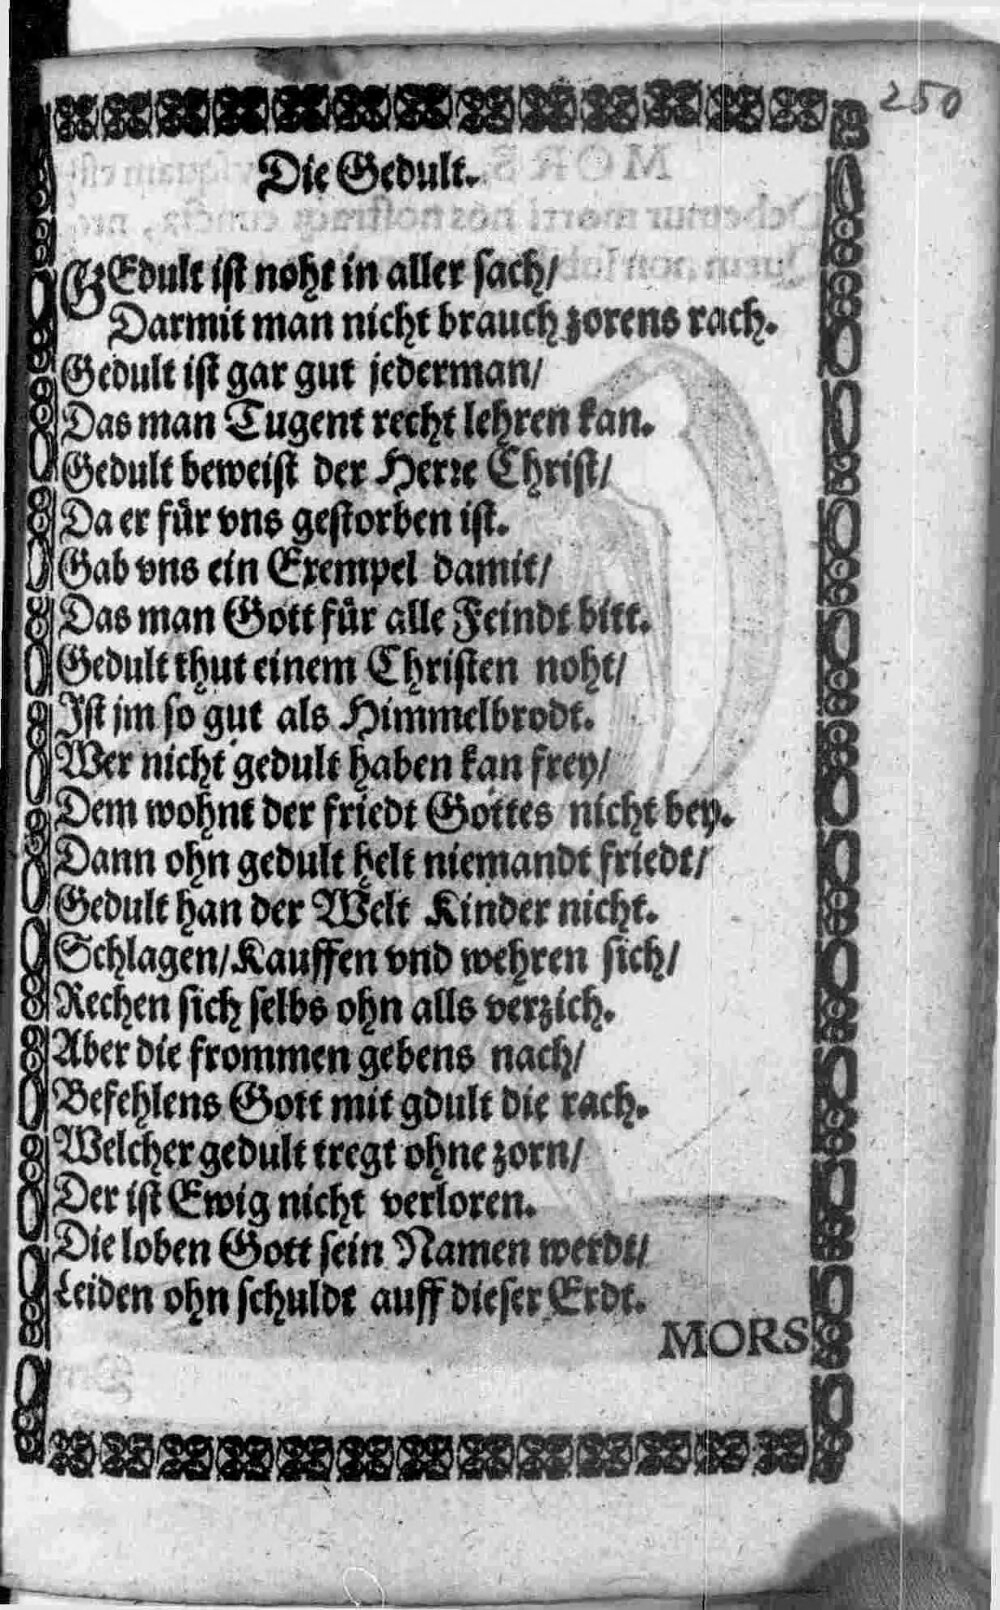 250
Die Gedult.
GEdult ist noht in aller sach/
Darmit man nicht brauch zorens rach.
Gedult ist gar gut jederman/
Das man Tugent recht lehren kan.
Gedult beweist der Herre Christ/
Da er für vns gestorben ist.
Gab vns ein Exempel damit/
Das man Gott für alle Feindt bitt.
Gedult thut einem Christen noht/
Ist jm so gut als Himmelbrodt.
Wer nicht gedult haben kan frey/
Dem wohnt der friedt Gottes nicht bey.
Dann ohn gedult helt niemandt friedt/
Gedult han der Welt Kinder nicht.
Schlagen/Kauffen vnd wehren sich/
Rechen sich selbs ohn alls verzich.
Aber die frommen gebens nach/
Befehlens Gott mit gdult die rach.
Welcher gedult tregt ohne zorn/
Der ist Ewig nicht verloren.
Die loben Gott sein Namen werdt/
Leiden ohn schuldt auff dieser Erdt.
MORS